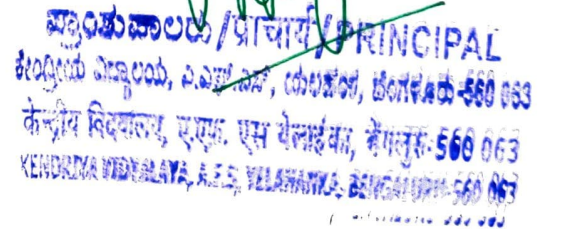 ಪ್ರಾಂಶುಪಾಲರು/प्राचार्य/PRINCIPAL
ಕೇಂದ್ರೀಯ ವಿದ್ಯಾಲಯ, ಎ.ಎಫ್.ಎಸ್, ಯಲಹಂಕ, ಬೆಂಗಳೂರು-560 063
केन्द्रीय विद्यालय, ए.एफ. एस येलाहंका, बेंगलुरु-560 063
KENDRIYA VIDYALAYA, A.F.S, YELAHANKA, BENGALURU-560 063